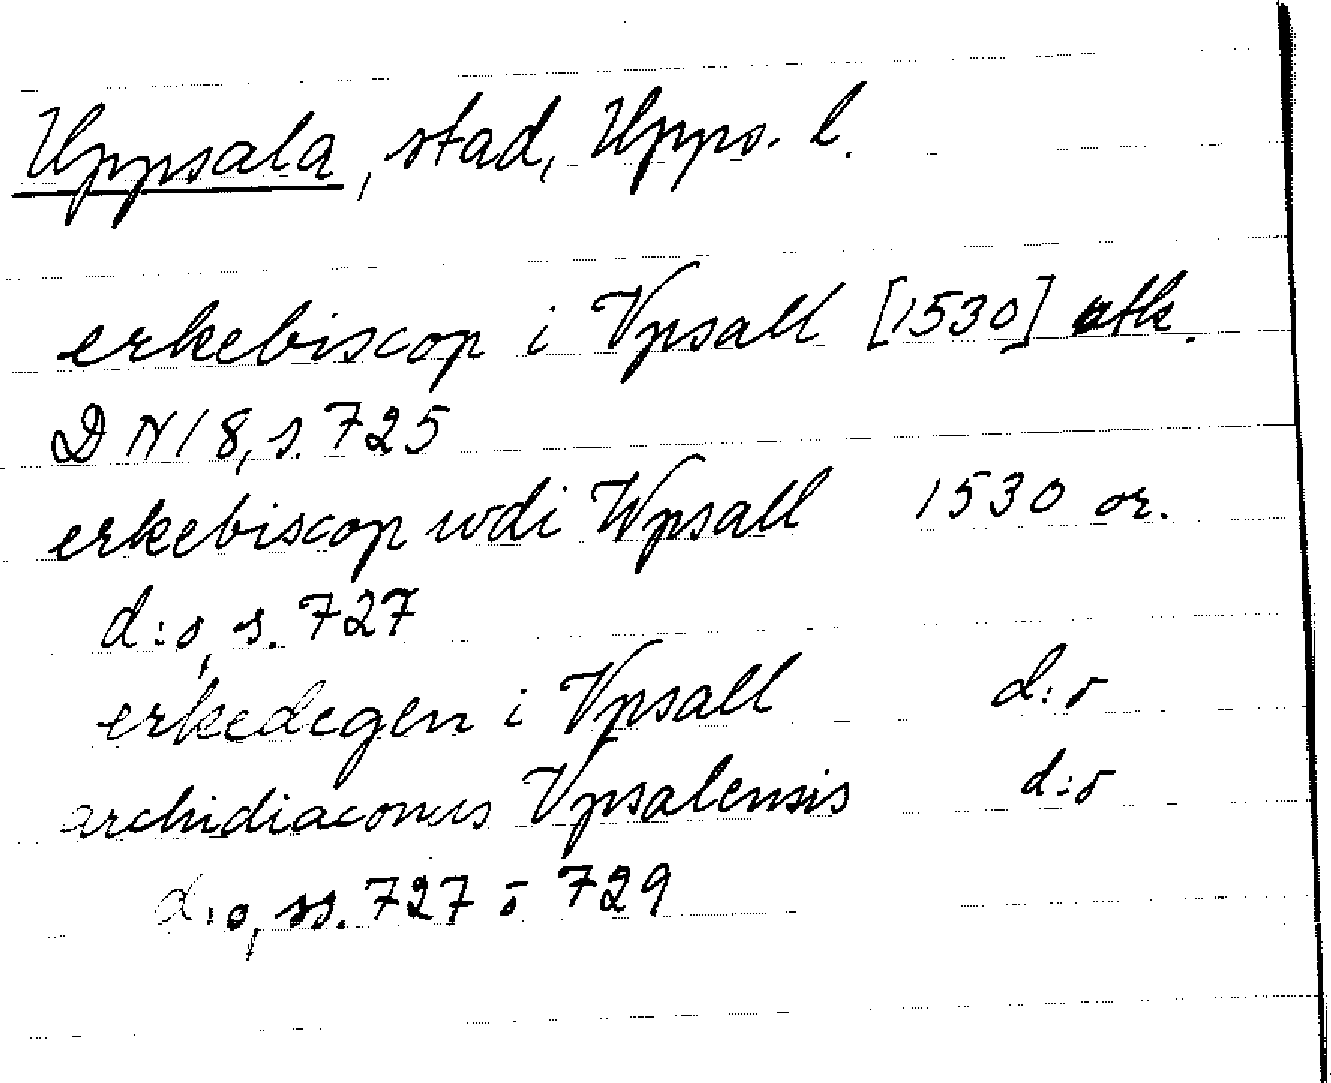 Uppsala, stad, Upps. l.
erkebiscop i Vpsall [1530] utk.
DN 18, s. 725
erkebiscop wdi Wpsall 1530 or.
d:o, s. 727
erkedegen i Vpsall d:o
archidiaconus Vpsalensis d:o
d:o, ss. 727 o 729